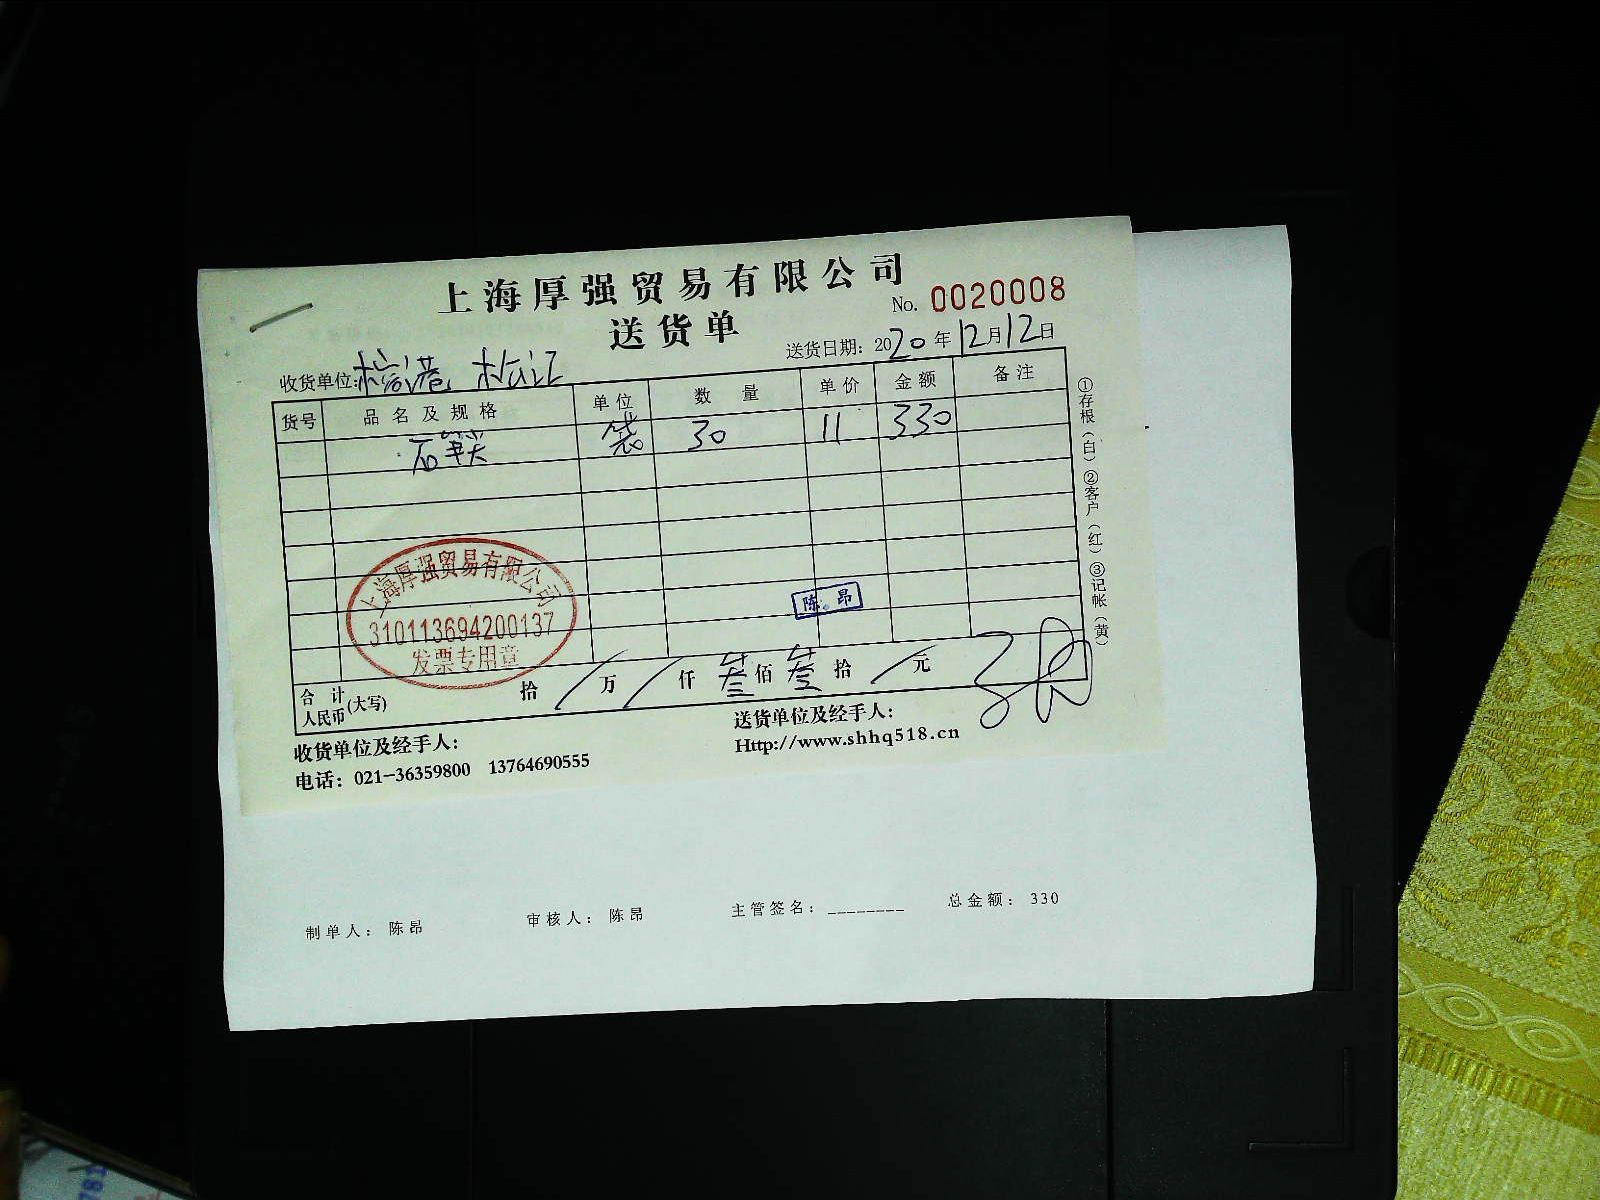 上海厚强贸易有限公司
No. 0020008
送货单
送货日期：2020年12月12日
收货单位：
货号 品名及规格 单位 数量 单价 金额 备注
石 袋 30 11 330
①存根（白）②客户（红）③记帐（黄）
上海厚强贸易有限公司
310113694200137
发票专用章
陈昂
合计人民币(大写) 拾 / 万 / 仟 叁 佰 叁 拾 / 元
收货单位及经手人：
送货单位及经手人：
电话：021-36359800 13764690555
Http://www.shhq518.cn
制单人：陈昂 审核人：陈昂 主管签名：________ 总金额：330
781